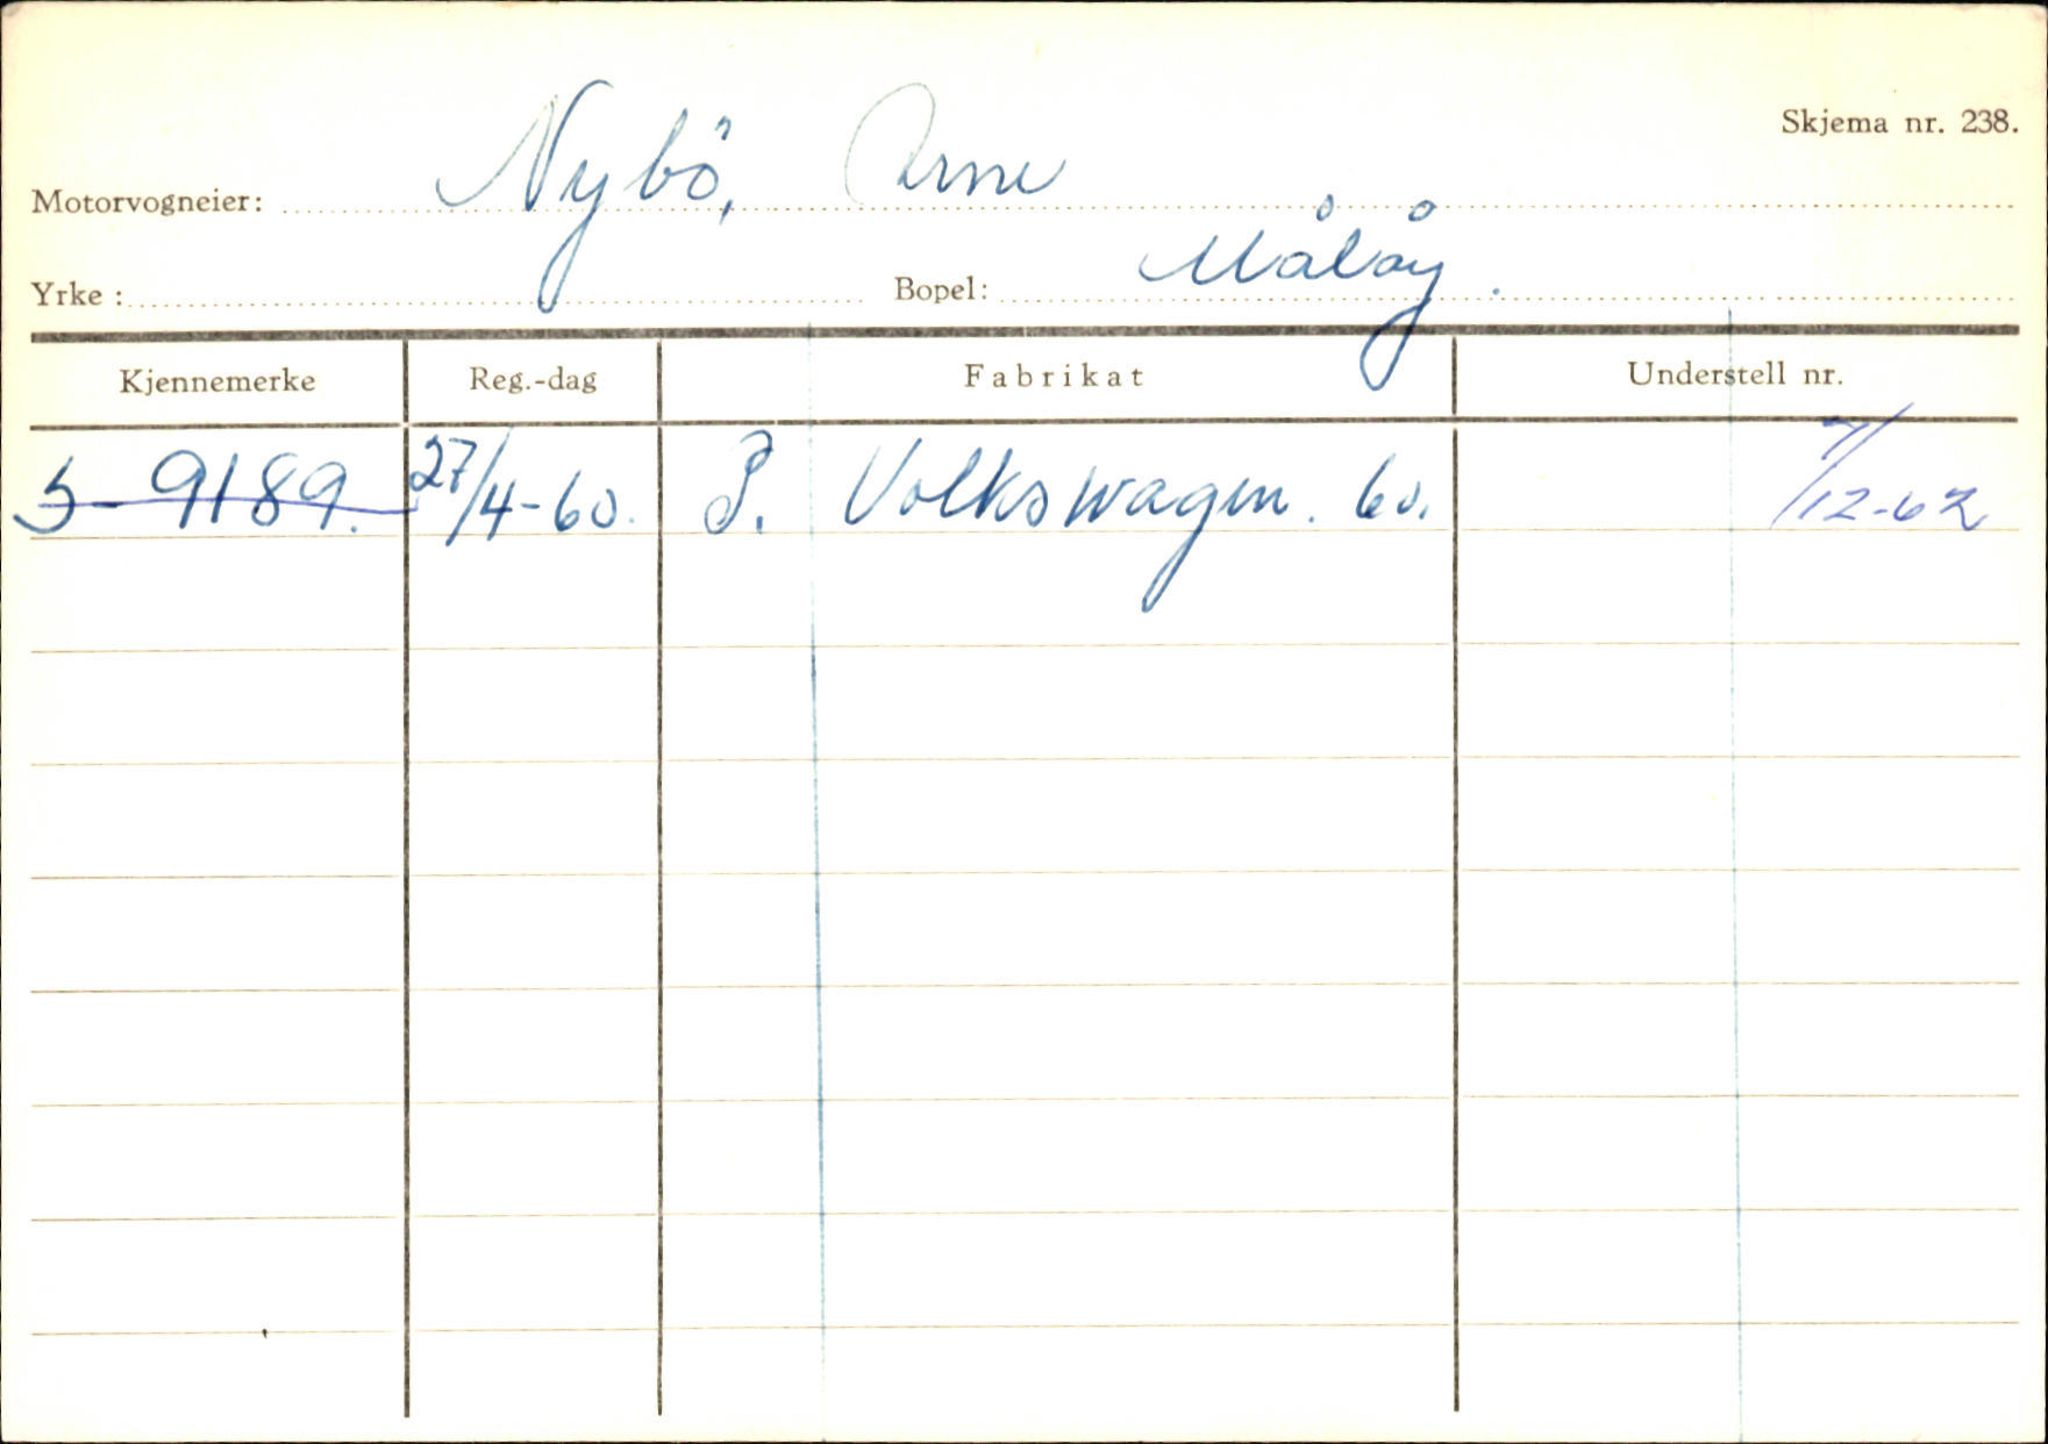 Skjema nr. 238.
Motorvogneier: Nybö, Arne
Yrke: Bopel: Måløy.
Kjennemerke Reg.-dag Fabrikat Understell nr.
S-9189. 27/4-60. P. Volkswagen. 60. 7/12-62